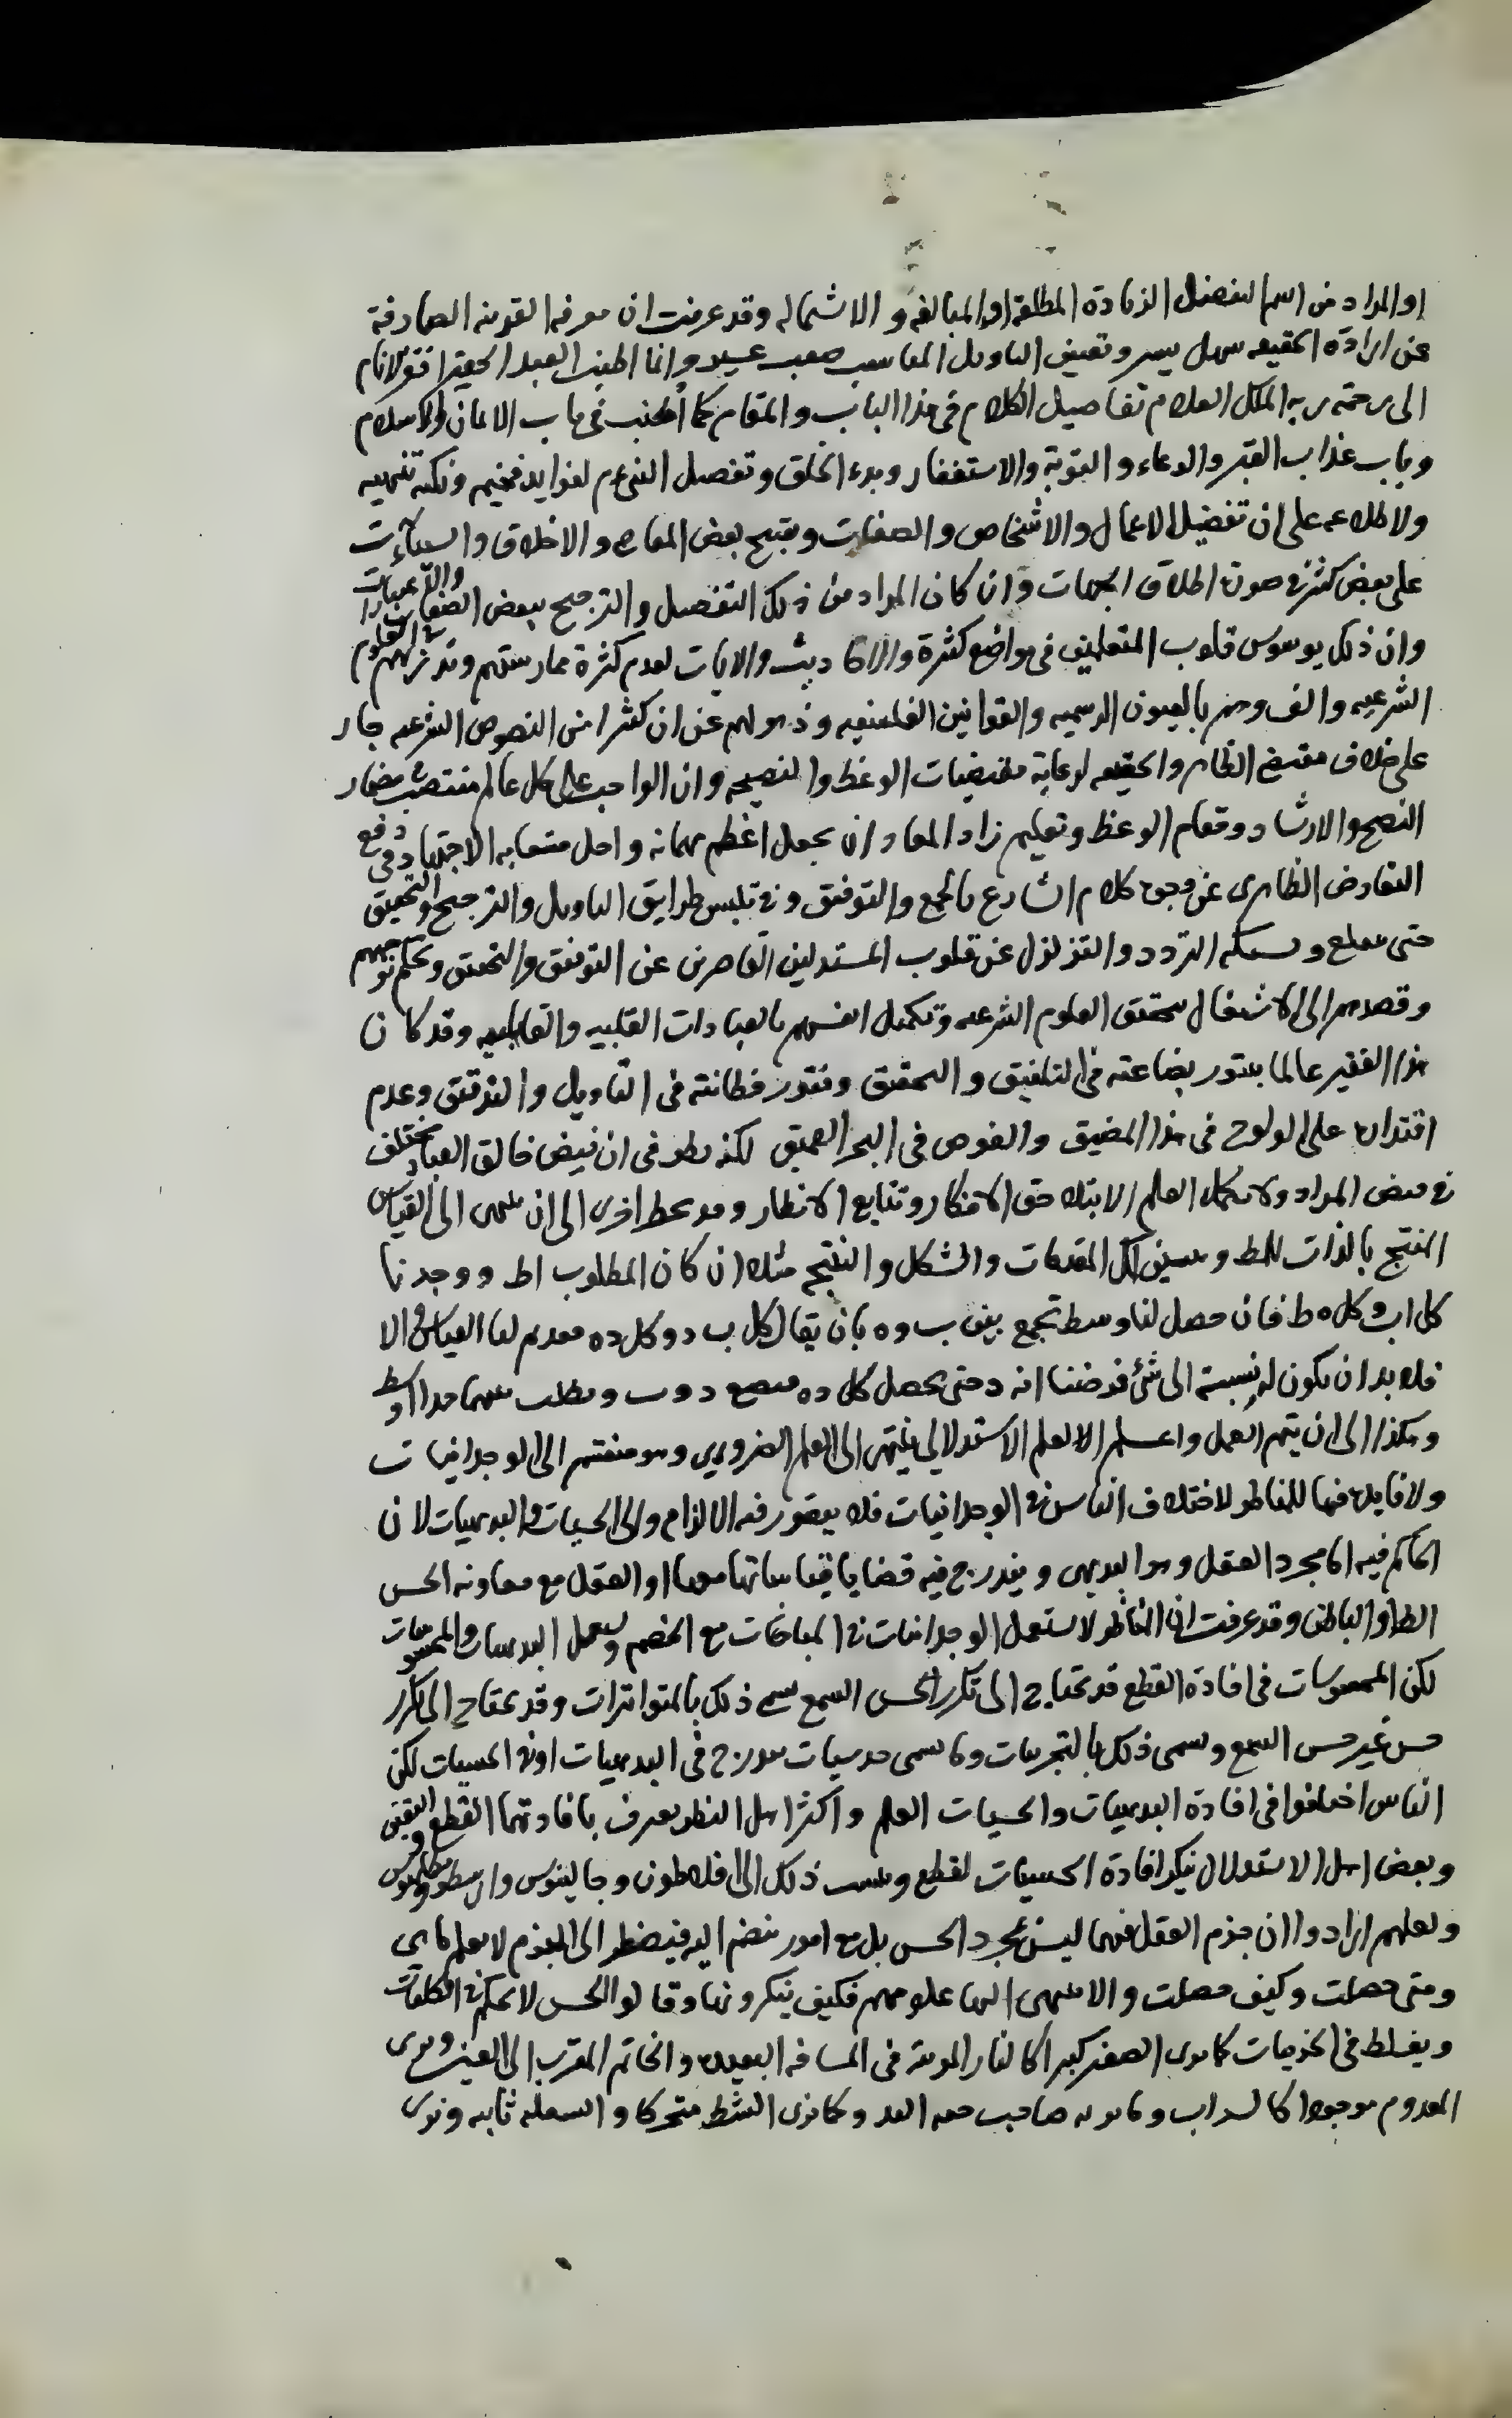 او المراد من اسم التفضيل الزيادة المطلقة او المبالغة و الاشماله وقد عرفت ان معرفة القرينة الصارفة
عن ارادة الحقيقه سهل يسير وتعيين التاويل المناسب صعب عسير وانما اطنب العبد الحقير افقر الانام
الى رحمة ربه الملك العلام تفاصيل الكلام فى هذا الباب و المقام كما أطنب فى باب الايمان والاسلام
وباب عذاب القبر والدعاء و التوبة والاستغفار وبدء الخلق وتفصيل النبى م لفوايد فخيمه ونكته تفهيميه
ولاطلاعه على ان تفضيل الاعمال والاشخاص و الصفات وتقبيح بعض المعاصى و الاخلاق والسيآت
على بعض كثير فى صورة اطلاق الجهات وان كان المراد من ذلك التفضيل و الترجيح ببعض الصفات والاعتبارات
وان ذلك يوسوس قلوب المتعلمين فى مواضع كثيرة والاحاديث والايات لعدم كثرة ممارستهم وتدربهم فى العلوم
الشرعيه والفوهم بالفنون الرسميه والقوانين الفلسفيه وذهولهم عن ان كثيرا من النصوص الشرعيه جار
على خلاف مقتضى الظاهر والحقيقه لرعاية مقتضيات الوعظ والنصيحه وان الواجب على كل عالم منتصب مضمار
النصح والارشاد ومقام الوعظ وتعليم زاد المعاد ان يجعل اعظم مهماته واجل متعابه الاجتهاد فى دفع
التعارض الظاهرى عن وجوه كلام الشارع بالجمع والتوفيق وفى تلبس طرايق التاويل والترجيح والتحقيق
حتى والتردد والتزلزل عن قلوب المستدلين القاصرين عن التوفيق والتحقيق ويحكم توجههم
وقصدهم الى الاشتغال بتحقيق العلوم الشرعيه وتكميل انفسهم بالعبادات القلبيه والقالبيه وقد كان
هذا الفقير عالما بفتور بضاعته فى التلفيق و التحقيق وفتور فطانته فى التاويل والتوفيق وعدم
اقتداره على الولوج فى هذا المضيق والغوص فى البحر العميق لكنه نظر فى ان فيض خالق العباد يختلف
فى المراد ولا يكمل العلم الا بتلاحق الافكار وتتابع الانظار الى ان ينتهى الى القياس
المنتج بالذات للمط ويتبين لكل المقدمات والشكل والنتيجه مثلا ان كان المطلوب اط ووجدنا
كل اب وكل ه ط فان حصل لنا وسط يجمع بين ب وه بان يقال كل ب د وكل ده فقد تم لنا القياس والا
فلا بد ان يكون له نسبة الى شئ فرضنا انه د حتى يحصل كل ده فيضع د وب ويطلب بينهما حدا اوسط
وهكذا الى ان يتم العمل واعلم ان العلم الاستدلالي ينتهى الى العلم الضروري وهو منقسم الى الوجدانيات
ولا فايدة فيها للمناظر لاختلاف الناس فى الوجدانيات فلا يتصور فيه الالزام والى الحسيات والبديهيات لان
الحاكم فيه اما مجرد العقل وهو البديهى ويندرج فيه قضايا قياساتها معها او العقل مع معاونة الحس
الظاهر او الباطن وقد عرفت ان المناظر لا يستعمل الوجدانيات فى المباحثات مع الخصم ويستعمل البديهيات والمحسوسات
لكن المحسوسات فى افادة القطع قد تحتاج الى تكرر الحس السمع يسمى ذلك بالمتواترات وقد يحتاج الى تكرر
حس غير حس السمع ويسمى ذلك بالتجربيات وما يسمى حدسيات مندرج فى البديهيات او فى الحسيات لكن
الناس اختلفوا فى افادة البديهيات والحسيات العلم واكثر اهل النظر يعترف بافادتهما القطع واليقين
وبعض اهل الاستدلال ينكر افادة الحسيات لقطع وينسب ذلك الى افلاطون وجالينوس وارسطو وبطلميوس
ولعلهم ارادوا ان جزم العقل فيها ليس بمجرد الحس بل مع امور ينضم اليه فيضطر الى الجزم لا يعلم ما هى
ومتى حصلت وكيف حصلت والا ينتهى اليها علومهم فكيف ينكرونها وقالوا الحس لا يحكم فى الكليات
ويغلط فى الجزئيات كما يرى الصغير كبيرا كالنار المرئية فى المسافة البعيدة والخاتم المقرب الى العين ويرى
المعدوم موجودا كالسراب وما يريه صاحب خفة اليد وكما نرى الشط متحركا و السفينة ثابته ونرى